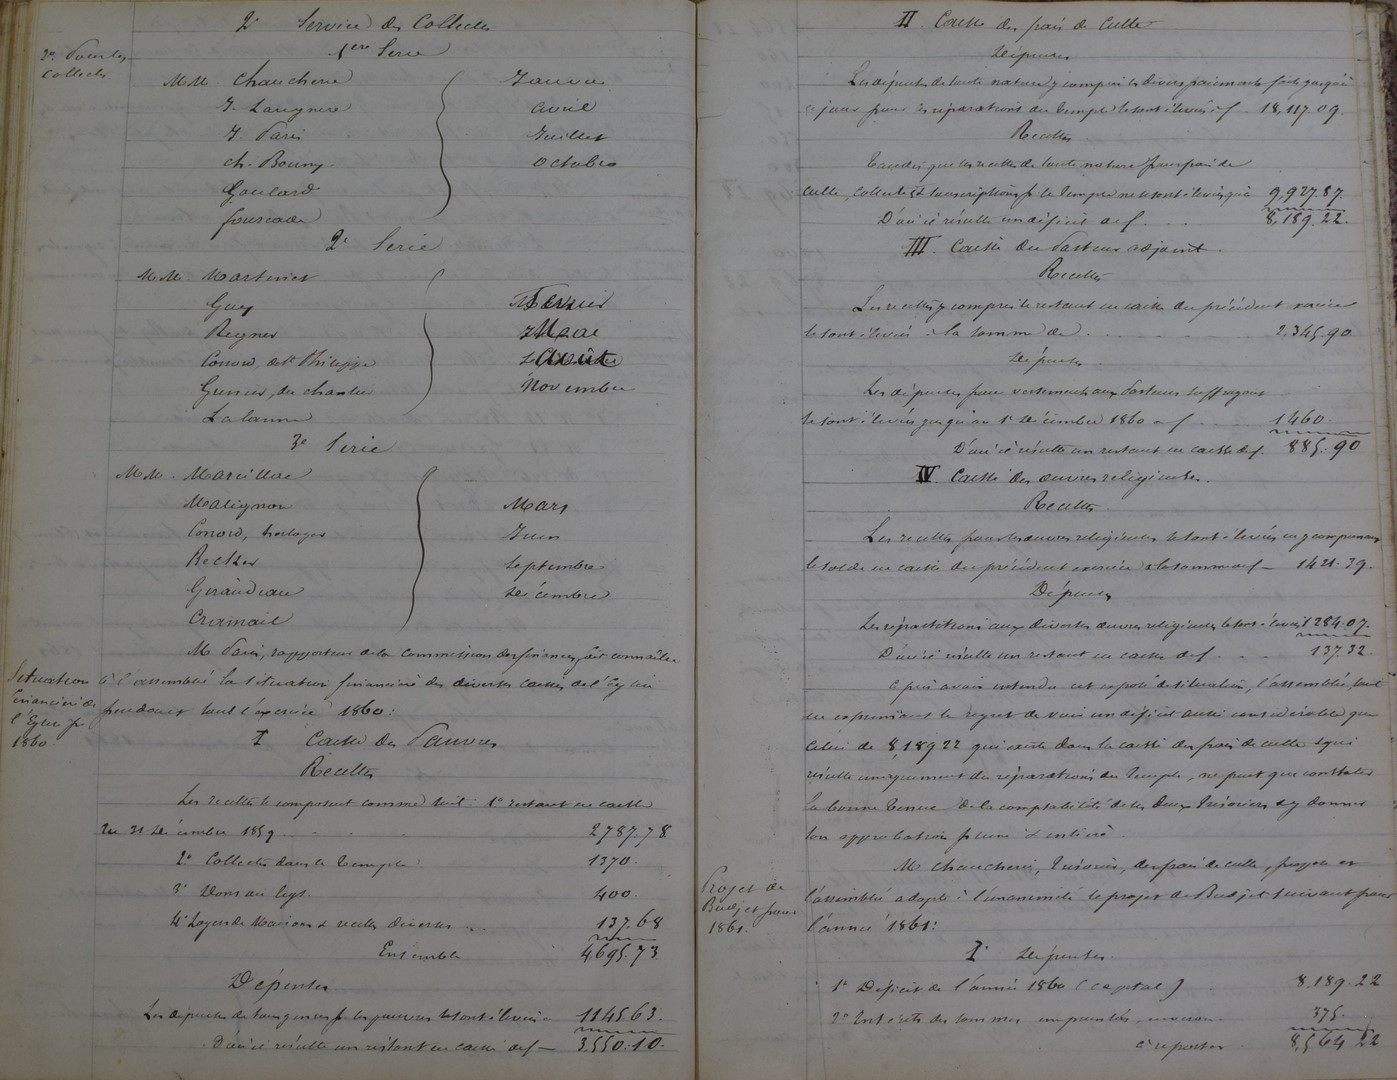 2° Service des Collectes
2° Pour les
Collectes.
1ere Serie
MM Chaucherie
Janvier
J. Laugnere
avril
J. Paris
Juillet
ch. Bouny
Octobre
Goulard
fourcade
2e Serie
MM. Martinet
Guy
Fevrier
Reyner
Mai
Conord, de St Philippe
Août
Grenier, des chantiers
Novembre
Lalanne
3e Serie
MM. Mareilhac
Malignon
Mars
Conord, horloger
Juin
Rectzer
Septembre
Giraudeau
Décembre
Cramail
M Paris, rapporteur de la Commission des finances, fait connaître
Situation
financière de
l'Eglise pr
1860
à l'assemblée la situation financière des diverses caisses de l'Eglise
pendant tout l'exercice 1860:
I Caisse des Pauvres
Recettes
Les recettes se composent comme suit 1° restant en caisse
au 31 Décembre 1859 2787.78
2° Collectes dans le Temple 1370.
3° Dons au legs. 400.
4° Loyer de Maisons & recettes diverses 137.68
Ensemble 4695.73
Dépenses
Les dépenses de tous genres pr les pauvres se sont élevées à 1145 63.
D'où il résulte un restant en caisse de f 3550.10.
II Caisse des frais de Culte
Dépenses
Les dépenses de toute nature y compris les divers paiements faits jusqu'à
ce jour pour les réparations du Temple se sont élevées à f 18,117.09
Recettes
Tandis que les recettes de toute nature pour frais de
culte, collectes & souscriptions pr le Temple ne se sont élevées qu'à 9,927.87.
D'où il résulte un déficit de f 8,189.22.
III. Caisse du Pasteur adjoint
Recettes
Les recettes y compris le restant en caisse du précédent exercice
se sont élevées à la somme de 2.345.90
Dépenses
Les dépenses pour versement aux Pasteurs suffragants
se sont élevées jusqu'au 1er Décembre 1860 à f 1460.
D'où il résulte un restant en caisse de f. 885.90
IV. Caisse des œuvres religieuses.
Recettes
Les recettes pour les œuvres religieuses se sont élevées en y comprenant
le solde en caisse du précédent exercice à la somme de f 1421.39.
Dépenses
Les répartitions aux diverses œuvres religieuses se sont élevées à 1284.07.
D'où il résulte un restant en caisse de f. 137.32
après avoir entendu cet exposé de situation, l'assemblée, tout
en exprimant le regret de voir un déficit aussi considérable que
celui de 8,189 22 qui existe dans la caisse des frais de culte & qui
résulte uniquement des réparations du Temple, ne peut que constater
la bonne tenue de la comptabilité de ses deux Trésoriers & y donner
son approbation pleine & entière.
Projet de
Budjet pour
1861.
M Chaucherie, Trésorier, des frais de culte, propose et
l'assemblée adopte à l'unanimité le projet de Budjet suivant pour
l'année 1861:
I° Dépenses
1° Déficit de l'année 1860 (capital) 8.189.22
2° Intérêts des sommes empruntées, environ 375.
à reporter 8,564 22